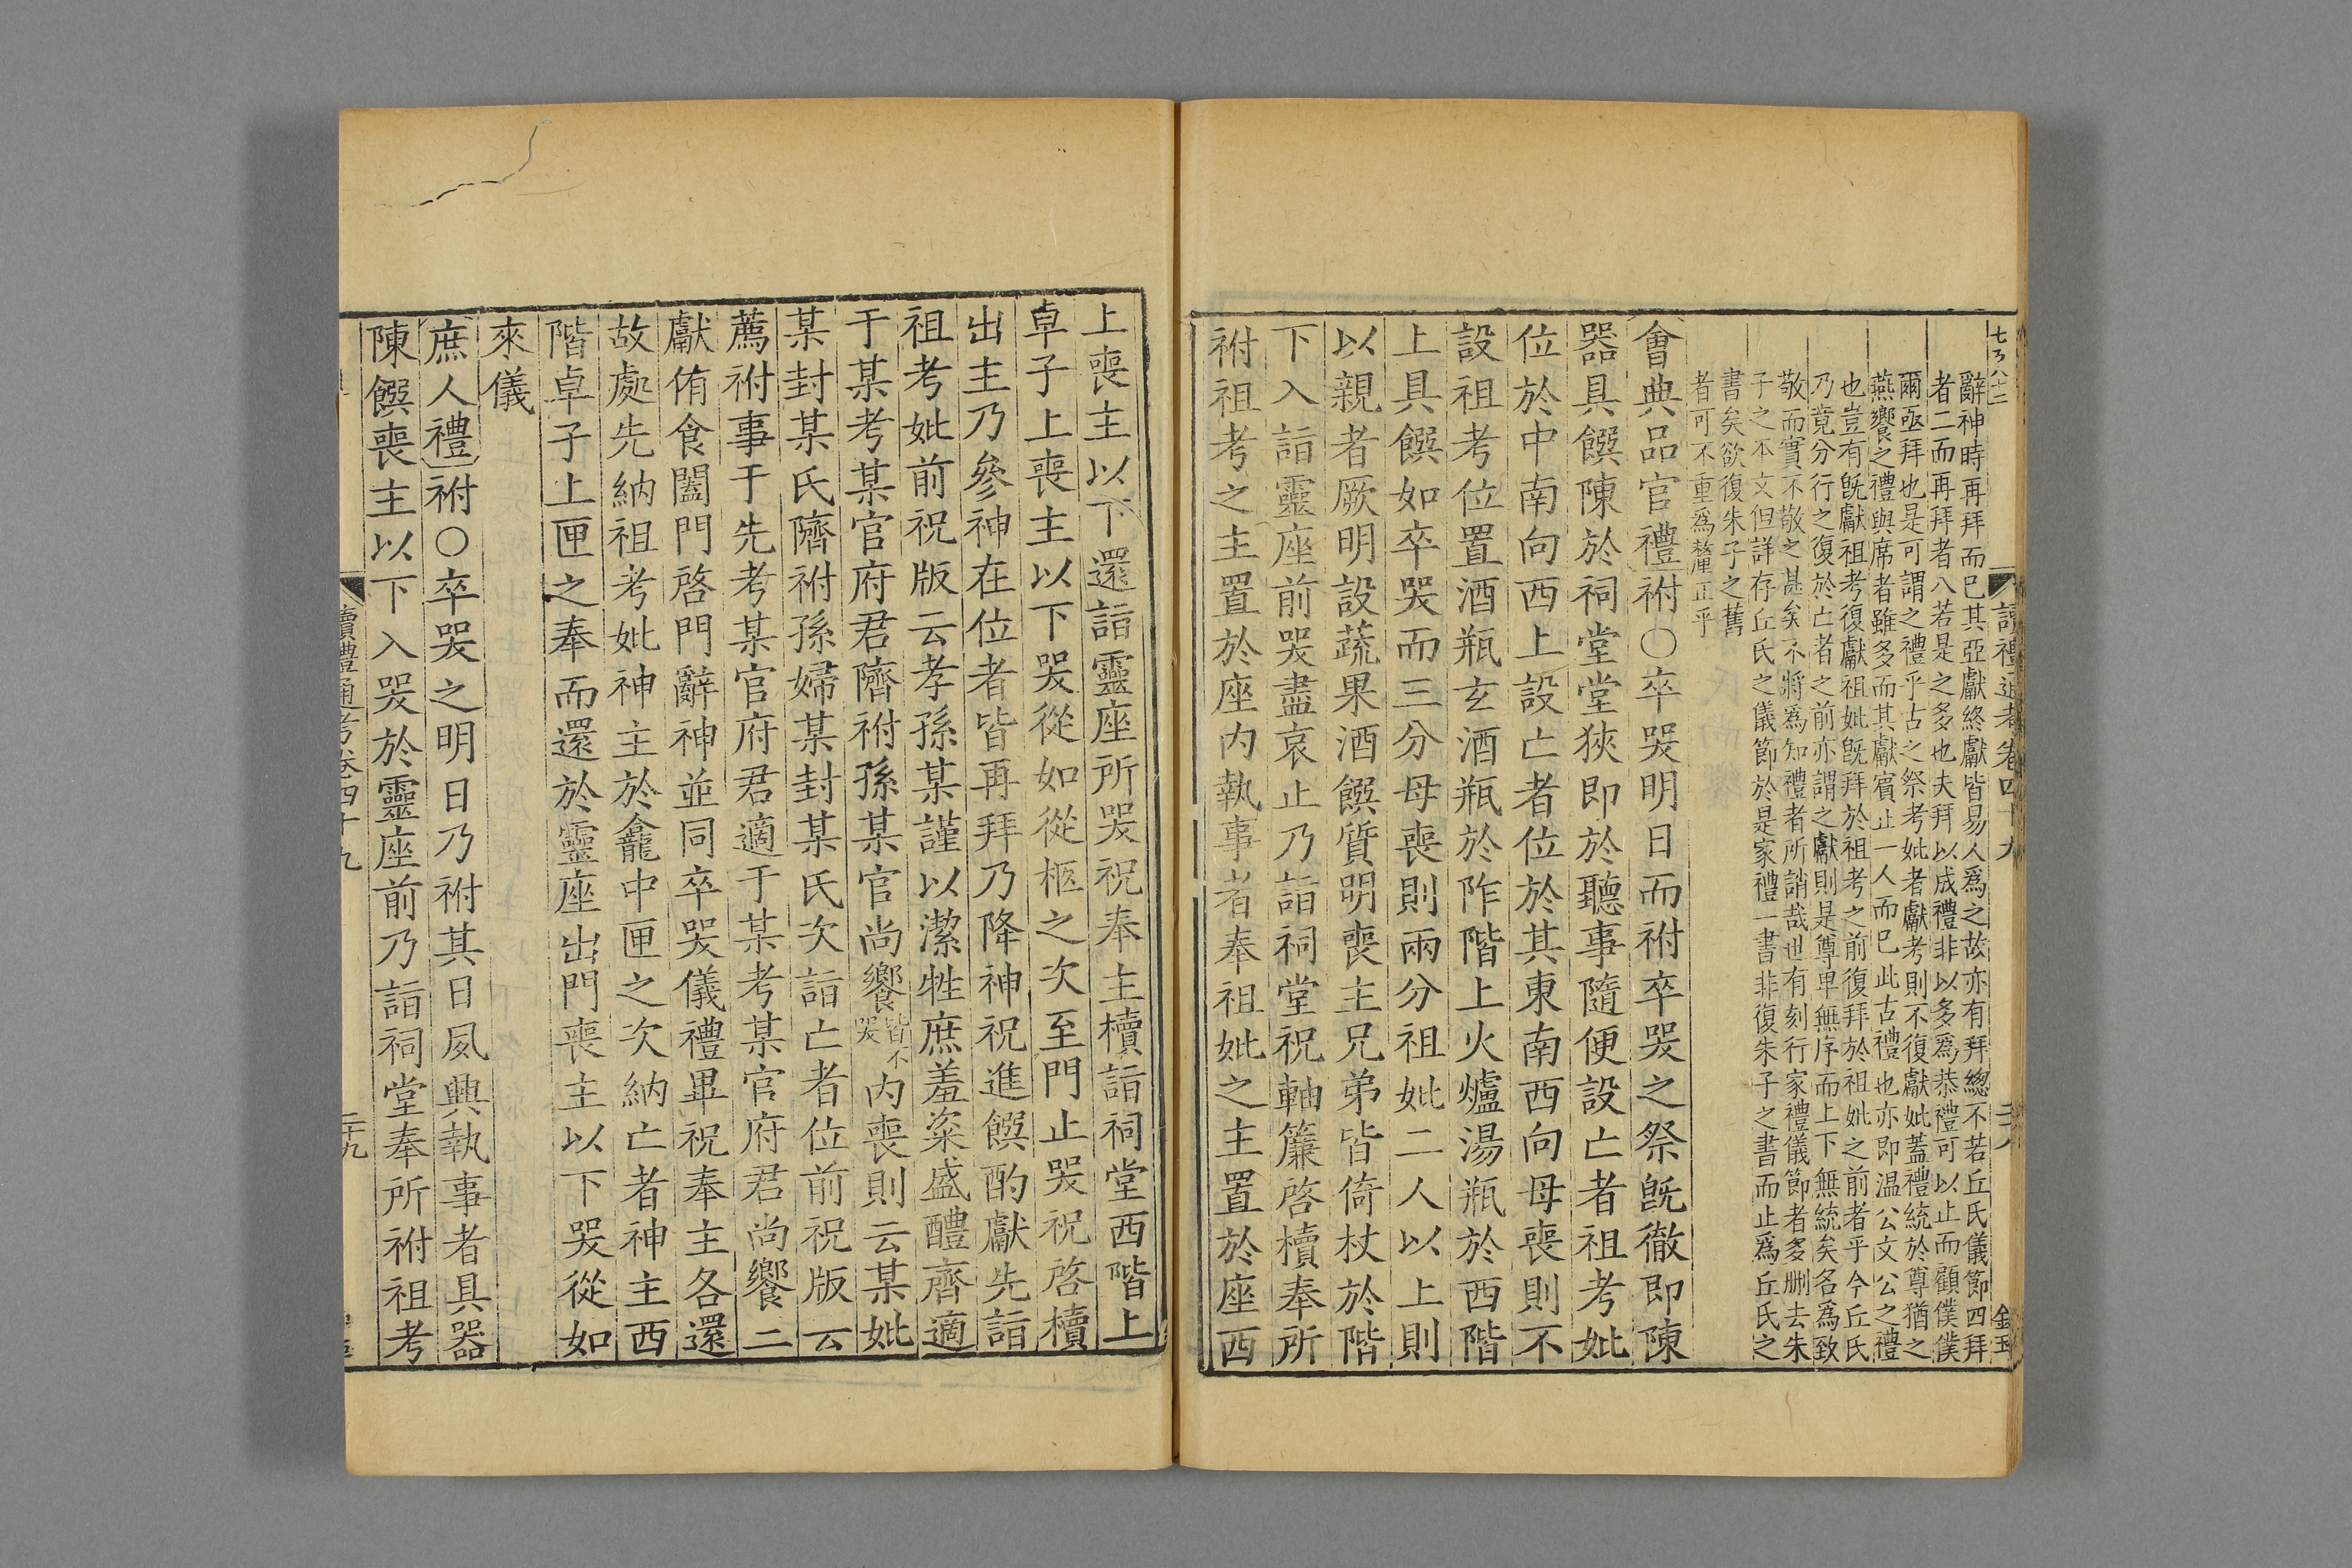 讀禮通考卷四十九
辭神時再拜而巳其亞獻終獻皆易人爲之故亦有拜總不若丘氏儀節四拜
者二而再拜者八若是之多也夫拜以成禮非以多爲恭禮可以止而顧僕僕
爾亟拜也是可謂之禮乎古之祭考妣者獻考則不復獻妣蓋禮統於尊猶之
燕饗之禮與席者雖多而其獻賓止一人而巳此古禮也亦即温公文公之禮
也豈有旣獻祖考復獻祖妣旣拜於祖考之前復拜於祖妣之前者乎今丘氏
乃竟分行之復於亡者之前亦謂之獻則是尊卑無序而上下無統矣名爲致
敬而實不敬之甚矣不將爲知禮者所誚哉世有刻行家禮儀節者多刪去朱
子之本文但詳存丘氏之儀節於是家禮一書非復朱子之書而止爲丘氏之
書矣欲復朱子之舊
者可不重爲釐正乎
會典品官禮祔○卒哭明日而祔卒哭之祭旣徹即陳
器具饌陳於祠堂堂狹即於聽事隨便設亡者祖考妣
位於中南向西上設亡者位於其東南西向母喪則不
設祖考位置酒瓶玄酒瓶於阼階上火爐湯瓶於西階
上具饌如卒哭而三分母喪則兩分祖妣二人以上則
以親者厥明設蔬果酒饌質明喪主兄弟皆倚杖於階
下入詣靈座前哭盡哀止乃詣祠堂祝軸簾啓櫝奉所
祔祖考之主置於座内執事者奉祖妣之主置於座西
上喪主以下還詣靈座所哭祝奉主櫝詣祠堂西階上
卓子上喪主以下哭從如從柩之次至門止哭祝啓櫝
出主乃參神在位者皆再拜乃降神祝進饌酌獻先詣
祖考妣前祝版云孝孫某謹以潔牲庶羞粢盛醴齊適
于某考某官府君隮祔孫某官尚饗皆不哭内喪則云某妣
某封某氏隮祔孫婦某封某氏次詣亡者位前祝版云
薦祔事于先考某官府君適于某考某官府君尚饗二
獻侑食闔門啓門辭神並同卒哭儀禮畢祝奉主各還
故處先納祖考妣神主於龕中匣之次納亡者神主西
階卓子上匣之奉而還於靈座出門喪主以下哭從如
來儀
庶人禮祔○卒哭之明日乃祔其日夙興執事者具器
陳饌喪主以下入哭於靈座前乃詣祠堂奉所祔祖考
讀禮通考卷四十九
二十九